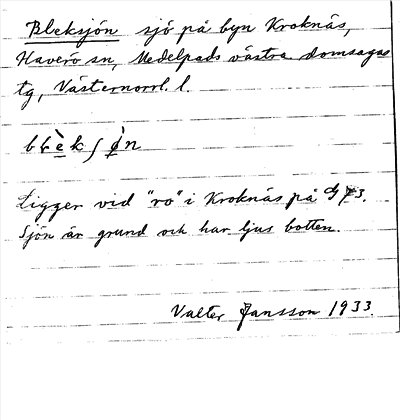 Bleksjön sjö på byn Kroknäs,
Haverö sn, Medelpads västra domsagas
tg, Västernorrl. l.
Ligger vid "ro" i Kroknäs på
Sjön är grund och har ljus botten.
Valter Jansson 1933.